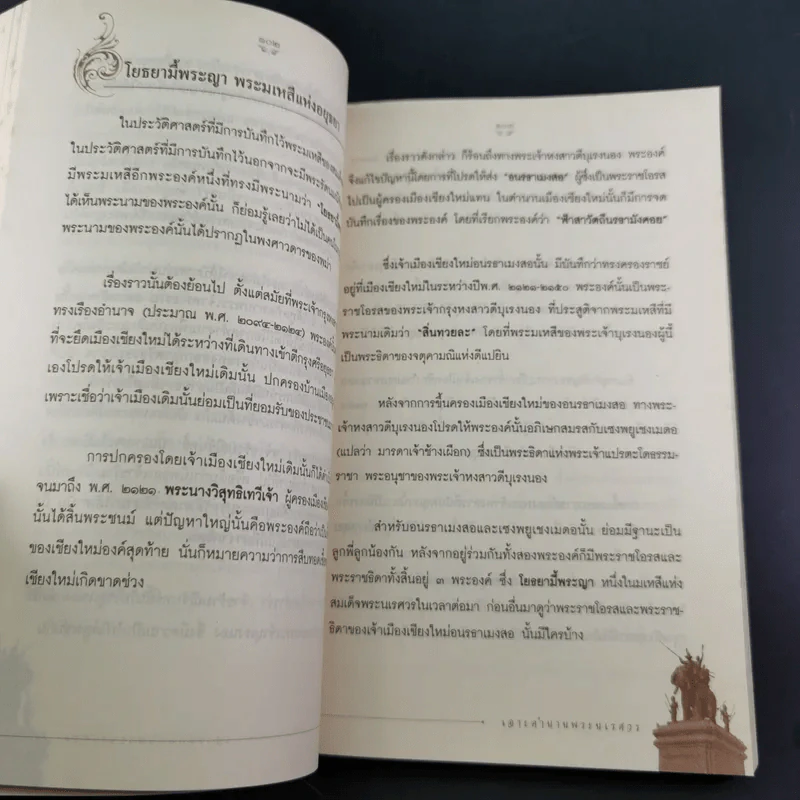 ๑๐๒
โยธยามี้พระญา พระมเหสีแห่งอยุธยา
ในประวัติศาสตร์ที่มีการบันทึกไว้พระมเหสีของ
ในประวัติศาสตร์ที่มีการบันทึกไว้นอกจากจะมีพระ
มีพระมเหสีอีกพระองค์หนึ่งที่ทรงมีพระนามว่า
ได้เห็นพระนามของพระองค์นั้น ก็ย่อมรู้เลยว่าไม่ได้เป็น
พระนามของพระองค์นั้นได้ปรากฏในพงศาวดารของพม่า
เรื่องราวนั้นต้องย้อนไป ตั้งแต่สมัยที่พระเจ้ากรุง
ทรงเรืองอำนาจ (ประมาณ พ.ศ. ๒๐๙๔-๒๑๒๔)
ที่จะยึดเมืองเชียงใหม่ได้ระหว่างที่เดินทางเข้าตีกรุงศรีอยุธยา
เองโปรดให้เจ้าเมืองเชียงใหม่เดิมนั้น ปกครองบ้านเมือง
เพราะเชื่อว่าเจ้าเมืองเดิมนั้นย่อมเป็นที่ยอมรับของประชาชน
การปกครองโดยเจ้าเมืองเชียงใหม่เดิมนั้นก็ได้
จนมาถึง พ.ศ. ๒๑๒๑ พระนางวิสุทธิเทวีเจ้า ผู้ครองเมือง
นั้นได้สิ้นพระชนม์ แต่ปัญหาใหญ่นั้นคือพระองค์ถือว่าเป็น
ของเชียงใหม่องค์สุดท้าย นั่นก็หมายความว่าการสืบทอด
เชียงใหม่เกิดขาดช่วง
เรื่องราวดังกล่าว ก็ร้อนถึงทางพระเจ้าหงสาวดีบุเรงนอง พระองค์
จึงแก้ไขปัญหานี้โดยการที่โปรดให้ส่ง "อนรธาเมงสอ" ผู้ซึ่งเป็นพระราชโอรส
ไปเป็นผู้ครองเมืองเชียงใหม่แทน ในตำนานเมืองเชียงใหม่นั้นก็มีการจด
บันทึกเรื่องของพระองค์ โดยที่เรียกพระองค์ว่า "ฟ้าสาวัตถีนรธามังคอย"
ซึ่งเจ้าเมืองเชียงใหม่อนรธาเมงสอนั้น มีบันทึกว่าทรงครองราชย์
อยู่ที่เมืองเชียงใหม่ในระหว่างปีพ.ศ. ๒๑๒๑-๒๑๕๐ พระองค์นั้นเป็นพระ
ราชโอรสของพระเจ้ากรุงหงสาวดีบุเรงนอง ที่ประสูติจากพระมเหสีที่มี
พระนามเดิมว่า "สิ่นทวยละ" โดยที่พระมเหสีของพระเจ้าบุเรงนองผู้นี้
เป็นพระธิดาของจตุคามณีแห่งดีแปยิน
หลังจากการขึ้นครองเมืองเชียงใหม่ของอนรธาเมงสอ ทางพระ-
เจ้าหงสาวดีบุเรงนองโปรดให้พระองค์นั้นอภิเษกสมรสกับเซงพยูเชงเมดอ
(แปลว่า มารดาเจ้าช้างเผือก) ซึ่งเป็นพระธิดาแห่งพระเจ้าแปรตะโดธรรม-
ราชา พระอนุชาของพระเจ้าหงสาวดีบุเรงนอง
สำหรับอนรธาเมงสอและเซงพยูเชงเมดอนั้น ย่อมมีฐานะเป็น
ลูกพี่ลูกน้องกัน หลังจากอยู่ร่วมกันทั้งสองพระองค์ก็มีพระราชโอรสและ
พระราชธิดาทั้งสิ้นอยู่ ๓ พระองค์ ซึ่ง โยธยามี้พระญา หนึ่งในมเหสีแห่ง
สมเด็จพระนเรศวรในเวลาต่อมา ก่อนอื่นมาดูว่าพระราชโอรสและพระราช-
ธิดาของเจ้าเมืองเชียงใหม่อนรธาเมงสอ นั้นมีใครบ้าง
เจาะตำนานพระนเรศวร